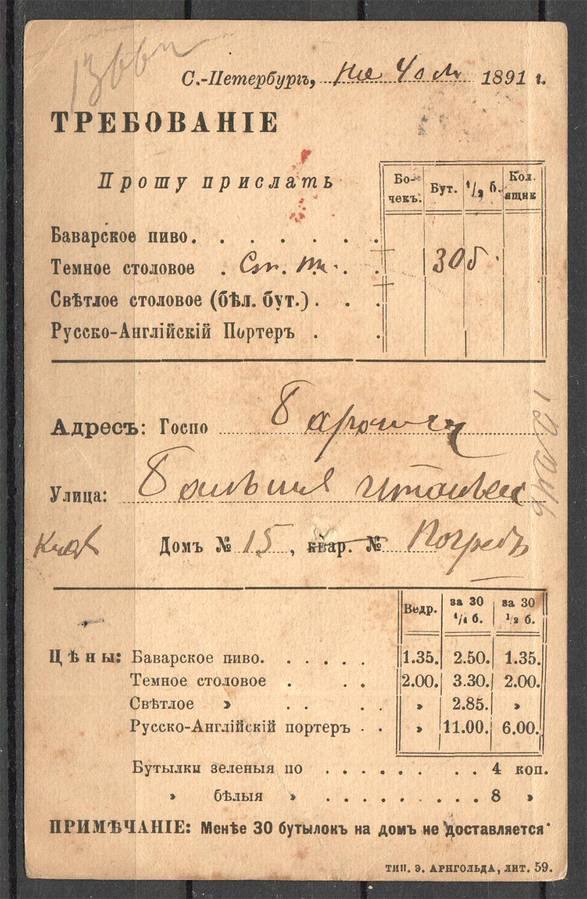 С.-Петербургъ, 1891 г.
ТРЕБОВАНІЕ
Прошу прислать
Бо-чекъ. Бут. 1/2 б. Кол. ящик
Баварское пиво.
Темное столовое . 30 б.
Свѣтлое столовое (бѣл. бут.)
Русско-Англійскій Портеръ
Адресъ: Госпо
Улица: Большая
Домъ № 15, квар. № Погребъ
Ведр. за 30 1/1 б. за 30 1/2 б.
Цѣны: Баварское пиво. 1.35. 2.50. 1.35.
Темное столовое 2.00. 3.30. 2.00.
Свѣтлое » » 2.85. »
Русско-Англійскій портеръ » 11.00. 6.00.
Бутылки зеленыя по 4 коп.
» бѣлыя » 8 »
ПРИМѢЧАНІЕ: Менѣе 30 бутылокъ на домъ не доставляется
ТИП. Э. АРНГОЛЬДА, ЛИТ. 59.